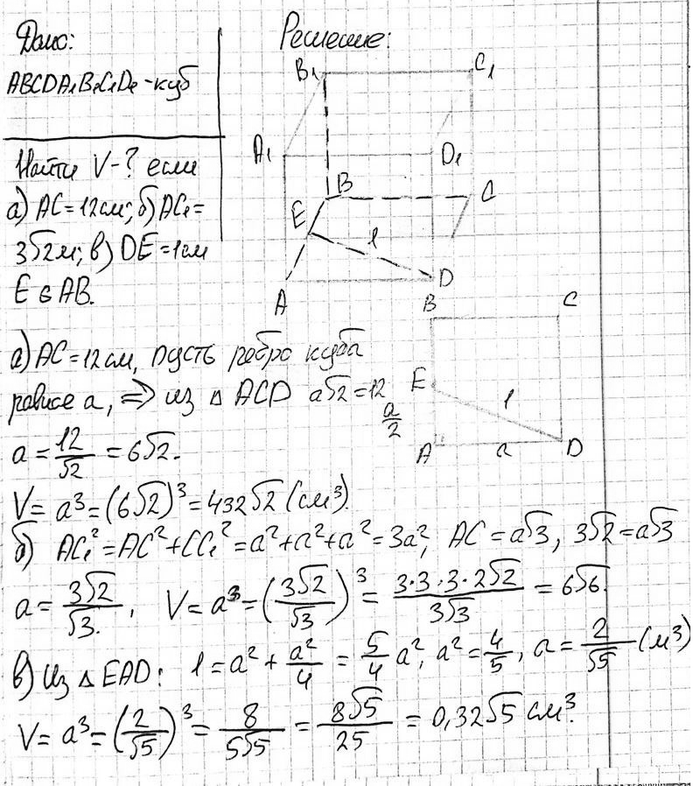 Дано:
ABCDA₁B₁C₁D₁ - куб
Найти V-? если
а) AC = 12 см; б) AC₁ =
3√2 м; в) DE = 1 см
E ∈ AB.
Решение:
B₁ C₁
A₁ D₁
B C
E 1
A D
B C
E 1
a/2
A a D
а) AC = 12 см, пусть ребро куба
равно a, ⇒ из △ ACD a√2 = 12
a = 12/√2 = 6√2.
V = a³ = (6√2)³ = 432√2 (см³)
б) AC₁² = AC² + CC₁² = a² + a² + a² = 3a², AC = a√3, 3√2 = a√3
a = 3√2/√3, V = a³ = (3√2/√3)³ = 3·3·3·2√2/3√3 = 6√6.
в) Из △ EAD: 1 = a² + a²/4 = 5/4 a², a² = 4/5, a = 2/√5 (м³)
V = a³ = (2/√5)³ = 8/5√5 = 8√5/25 = 0,32√5 см³.